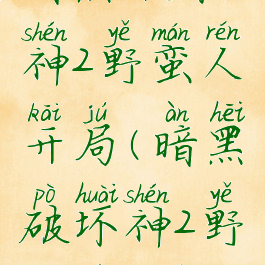 shén yě mán rén
神2野蛮人
kāi jú àn hēi
开局(暗黑
pò huài shén yě
破坏神2野